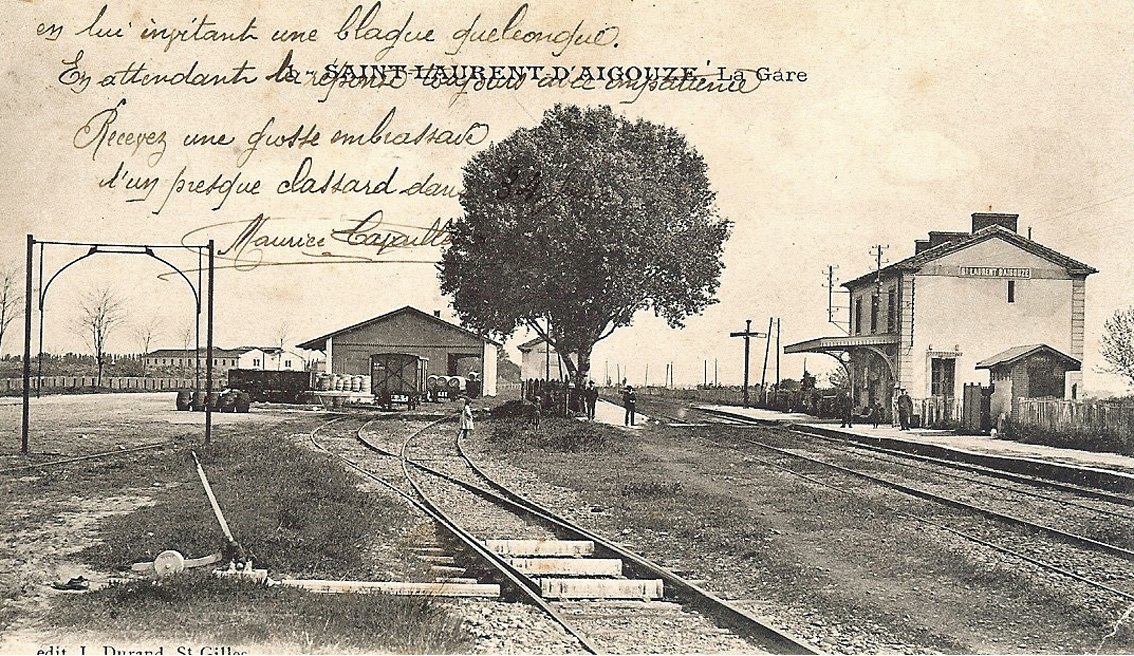 en lui invitant une blague quelconque.
En attendant la réponse toujours avec impatience
SAINT-LAURENT-D'AIGOUZE, La Gare
Recevez une grosse embrassade
d'un presque classard dans
Maurice
ST LAURENT D'AIGOUZE
edit. J. Durand, St-Gilles